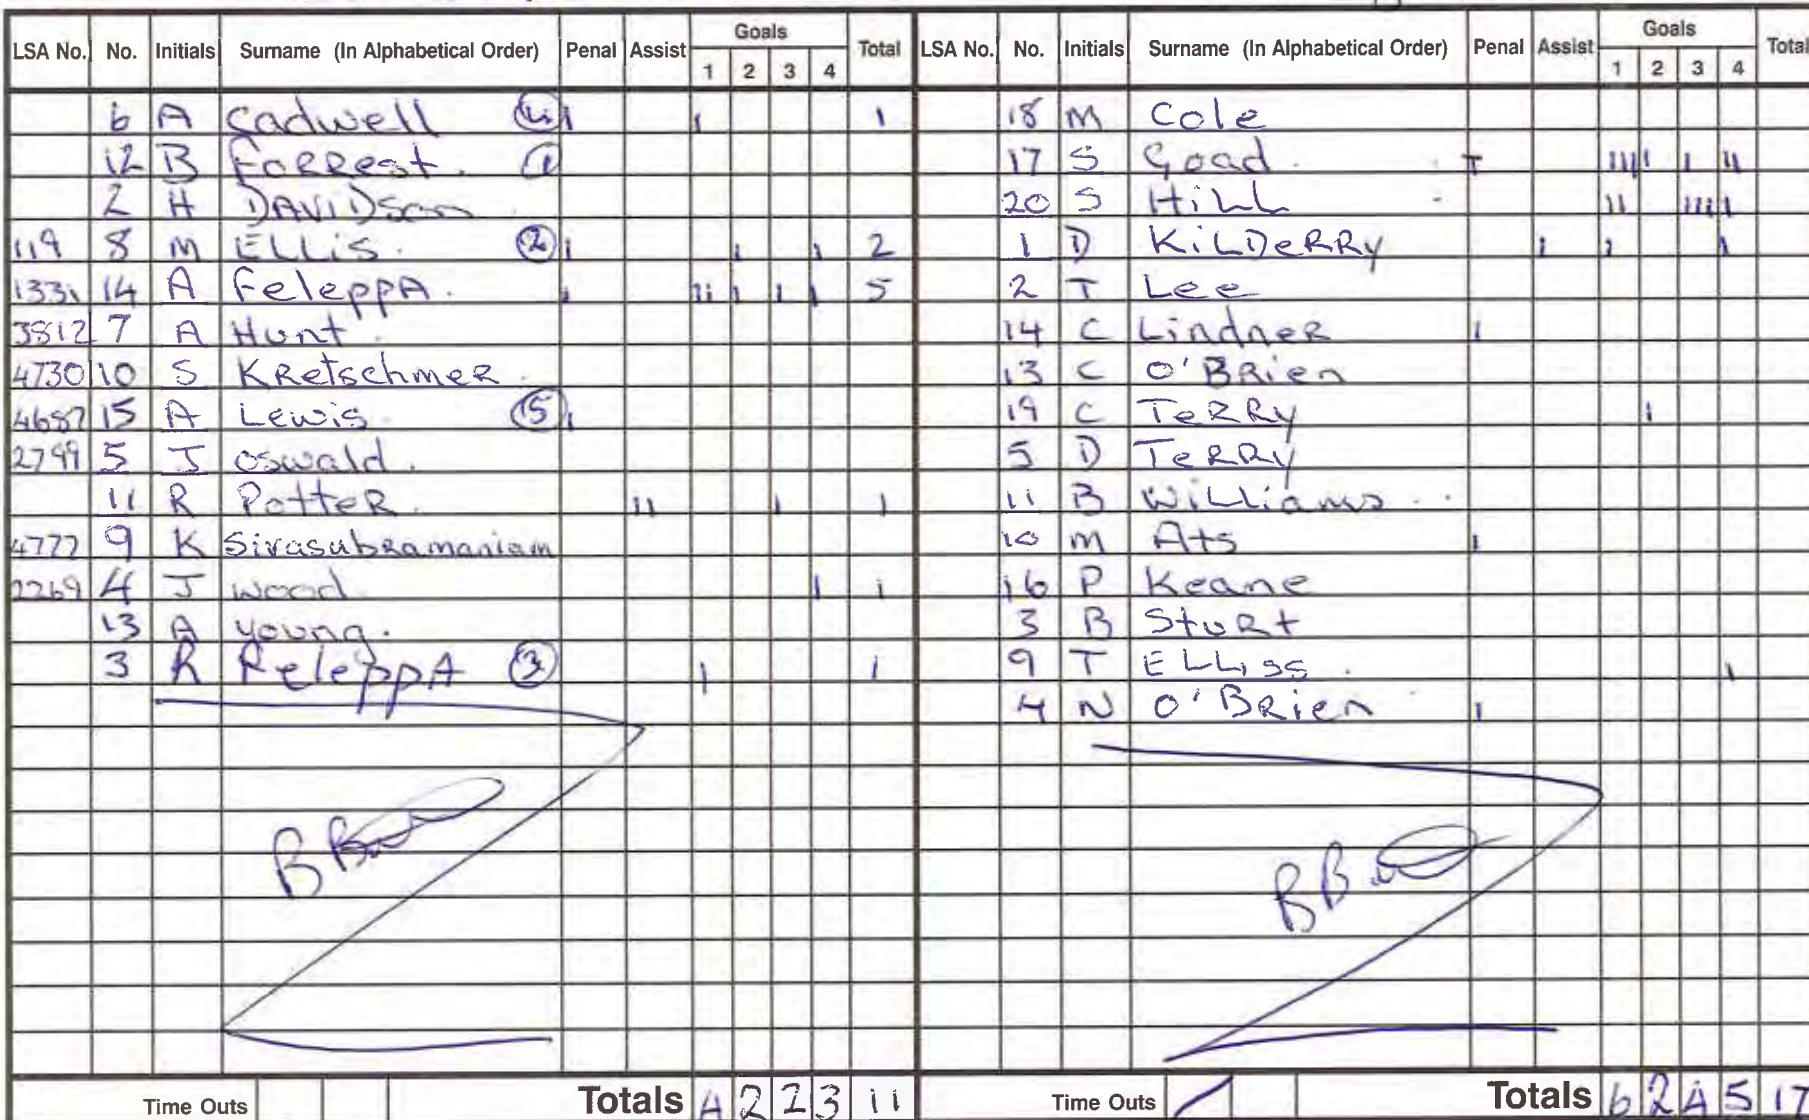 LSA No. No. Initials Surname (In Alphabetical Order) Penal Assist Goals 1 2 3 4 Total
6 A Cadwell 4 I I 1
12 B Forrest. 1
2 H DAVIDSon
119 8 M ELLiS. 2 I I I 2
1331 14 A FeleppA. I II I I I 5
3812 7 A Hunt.
4730 10 S KRetschmeR.
4687 15 A Lewis. 5 I
2799 5 J Oswald.
11 R PotteR. II I 1
4777 9 K SivasubRamaniam
2269 4 J Wood I 1
13 A Young.
3 R FeleppA 3 I 1
Time Outs Totals 4 2 2 3 11
LSA No. No. Initials Surname (In Alphabetical Order) Penal Assist Goals 1 2 3 4 Total
18 M Cole
17 S Goad. T III I I II
20 S HiLL II IIII
1 D KiLDeRRy I I I
2 T Lee
14 C LindneR I
13 C O'BRien
19 C TeRRy I
5 D TeRRy
11 B WiLLiams
10 M Ats I
16 P Keane
3 B StuRt
9 T ELLiss. I
4 N O'BRien I
Time Outs / Totals 6 2 4 5 17